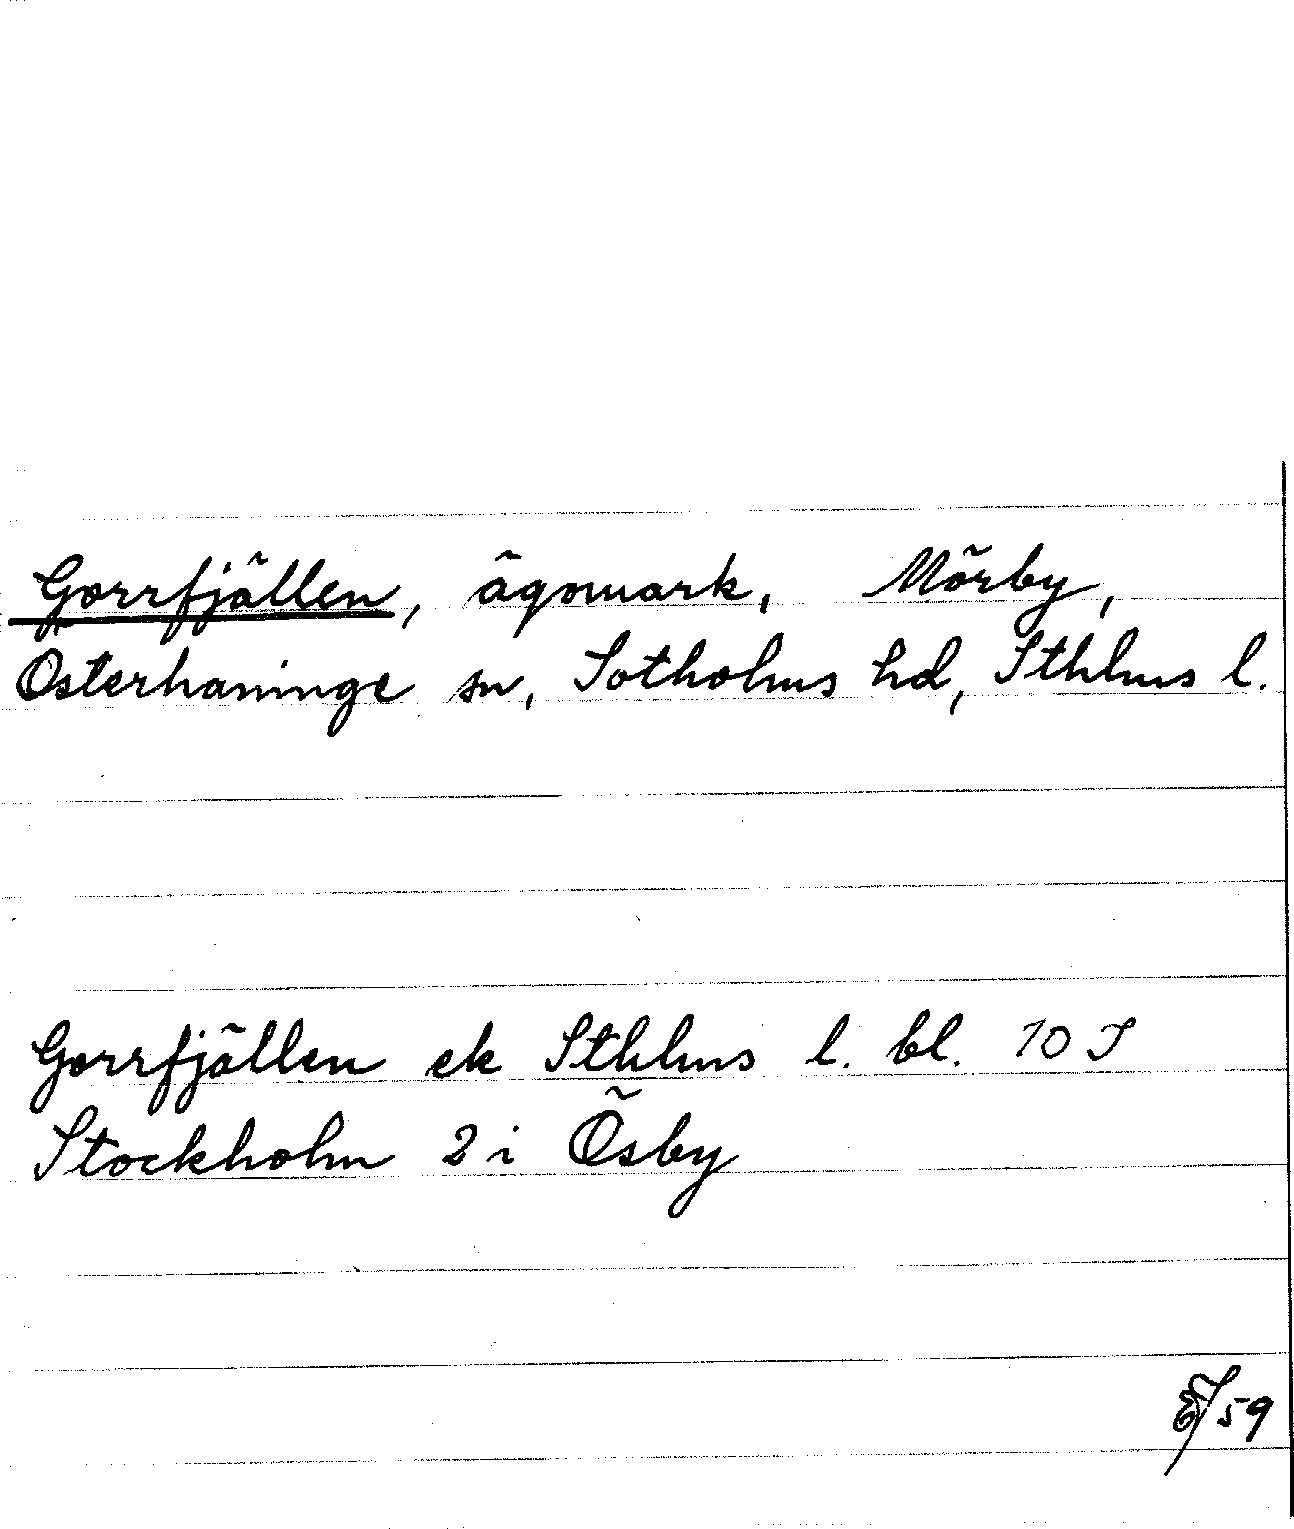 Gorrfjällen, ägomark, Mörby,
Österhaninge sn, Sotholms hd, Sthlms l.
Gorrfjällen ek Sthlms l. bl. 10 I
Stockholm 2 i Ösby
/59